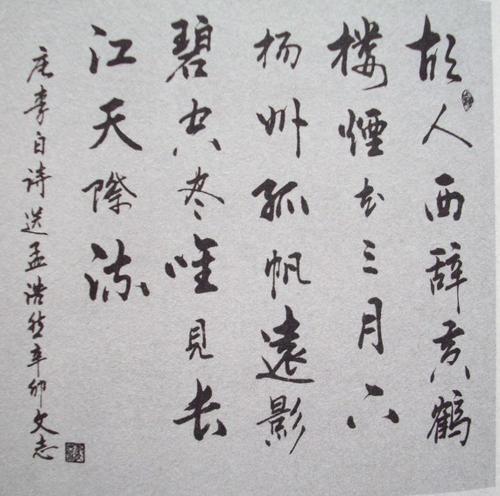 故人西辞黄鹤
楼煙花三月下
杨州孤帆遠影
碧空尽唯見长
江天際流
唐李白诗送孟浩然辛卯文志